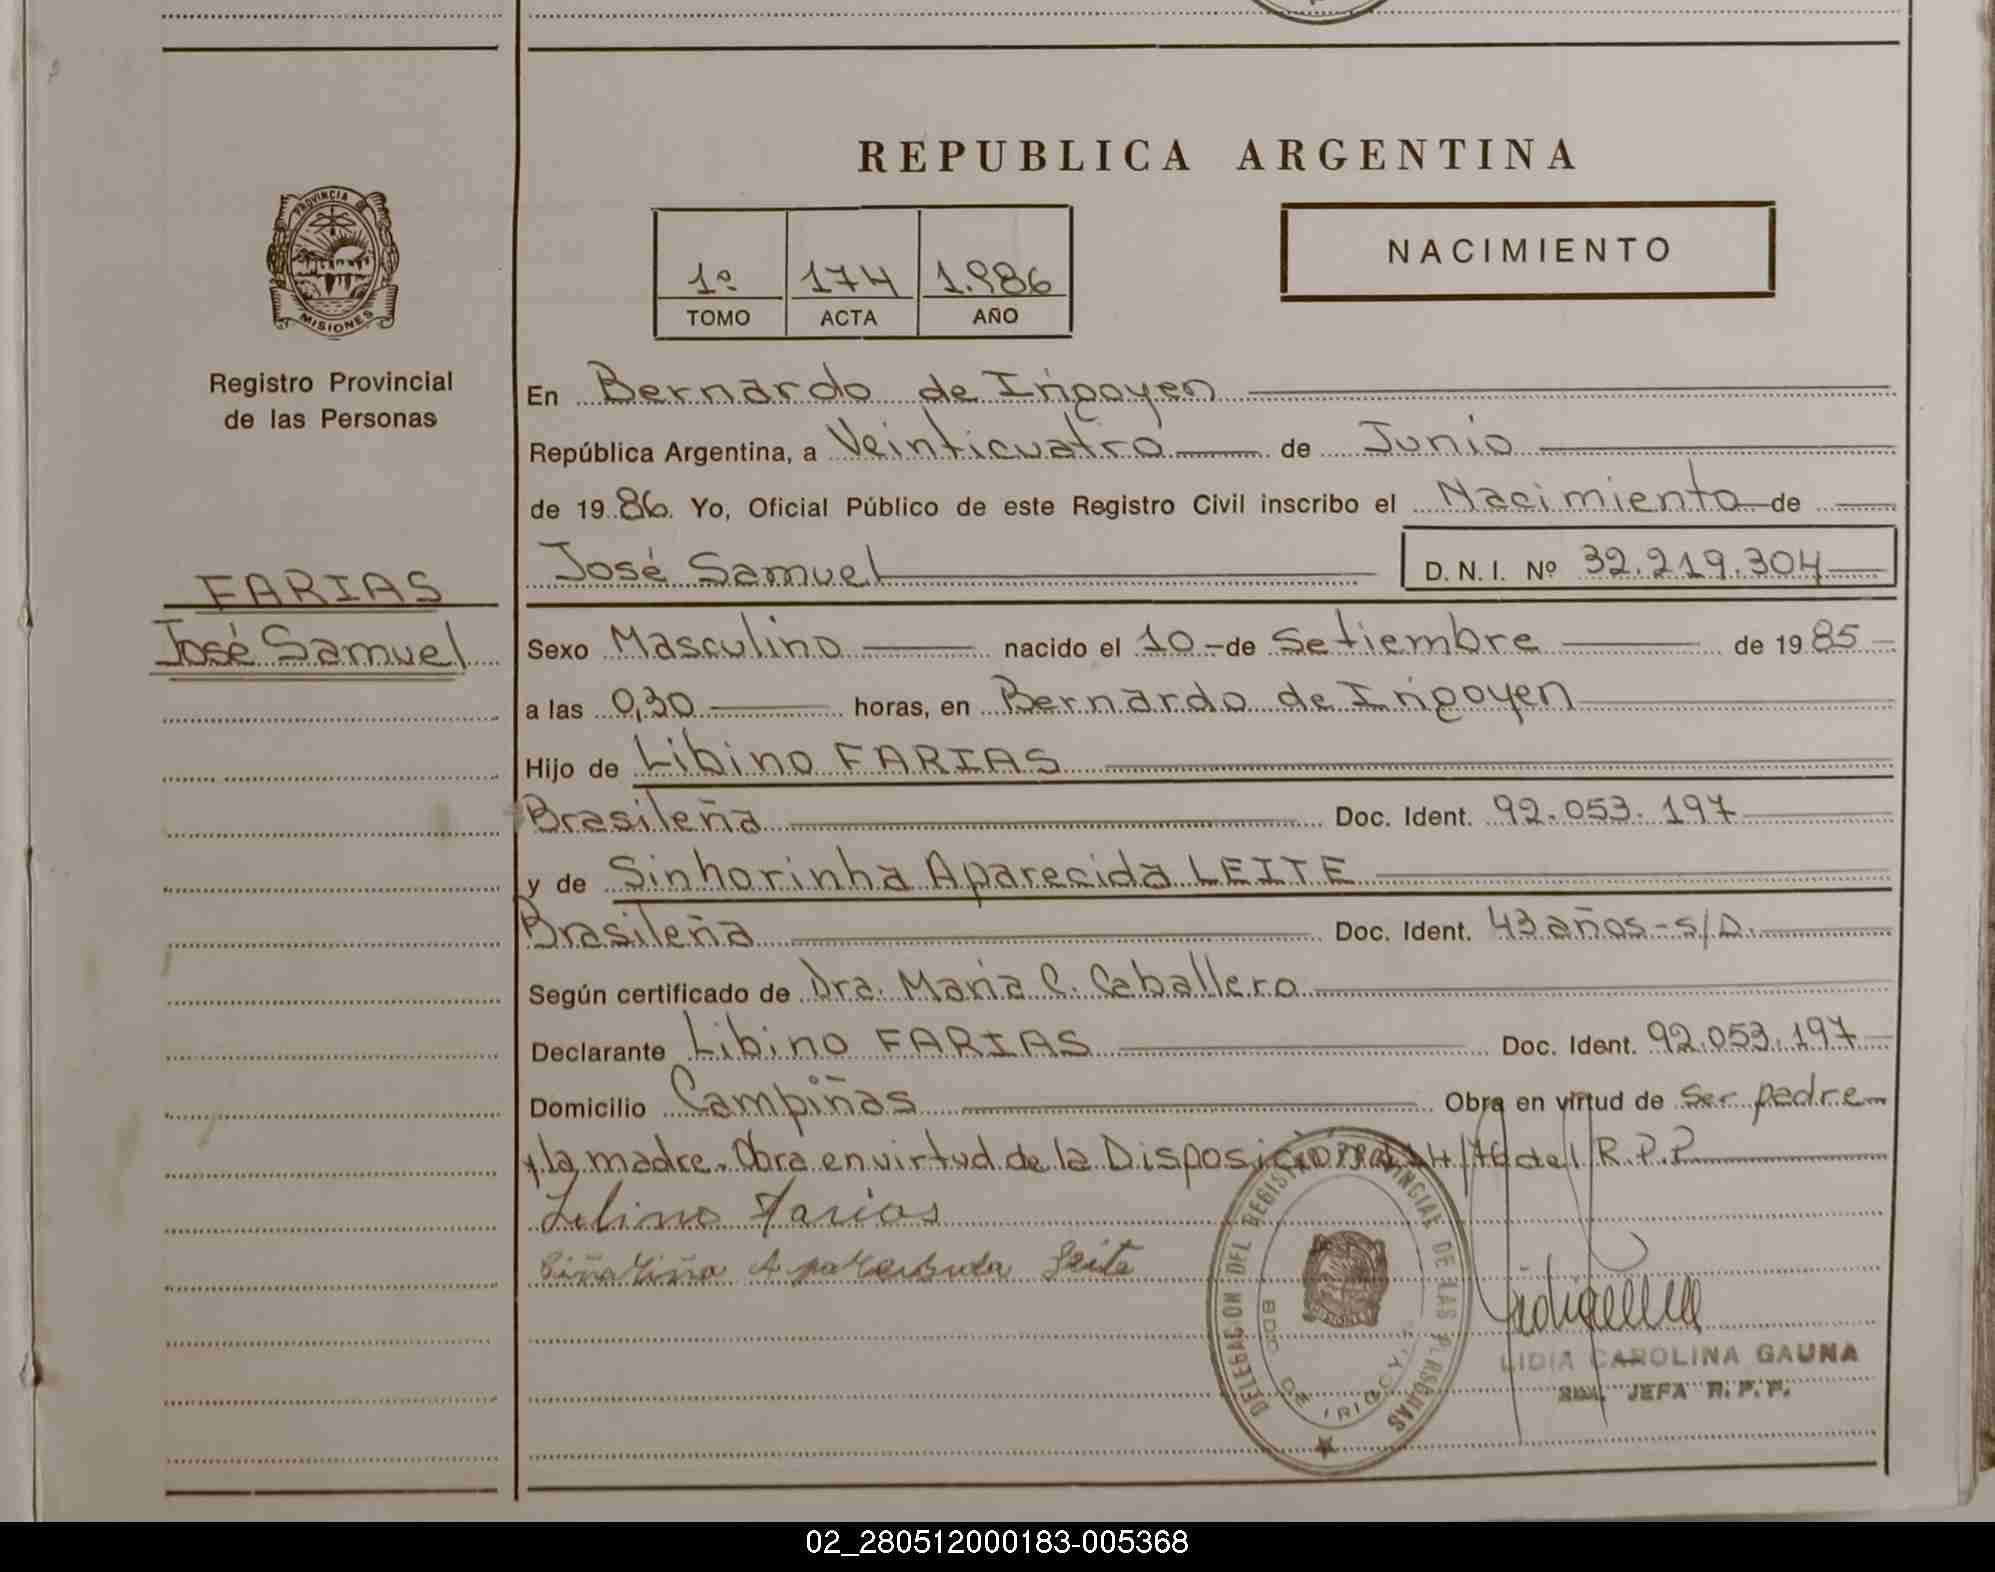 REPUBLICA ARGENTINA
PROVINCIA DE
MISIONES
Registro Provincial
de las Personas
1º 174 1.986
TOMO ACTA AÑO
NACIMIENTO
En Bernardo de Irigoyen
República Argentina, a Veinticuatro de Junio
de 1986. Yo, Oficial Público de este Registro Civil inscribo el Nacimiento de
José Samuel D. N. I. Nº 32.219.304
FARIAS
José Samuel
Sexo Masculino nacido el 10-de Setiembre de 1985
a las 0,30 horas, en Bernardo de Irigoyen
Hijo de Libino FARIAS
Brasileña Doc. Ident. 92.053.197
y de Sinhorinha Aparecida LEITE
Brasileña Doc. Ident. 43 años-s/D.
Según certificado de Dra. Maria C. Caballero
Declarante Libino FARIAS Doc. Ident. 92.053.197
Domicilio Campiñas Obra en virtud de Ser padre
y la madre. Obra en virtud de la Disposición /76 del R.P.P
Libino Farias
Leite
DELEGACION DEL REGISTRO PROVINCIAL DE LAS PERSONAS
BDO. DE IRIGOY.
LIDIA CAROLINA GAUNA
JEFA R. P. P.
02_280512000183-005368